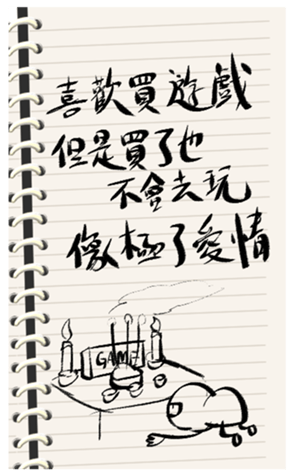 喜歡買遊戲
但是買了也
不會去玩
像極了愛情
GAME